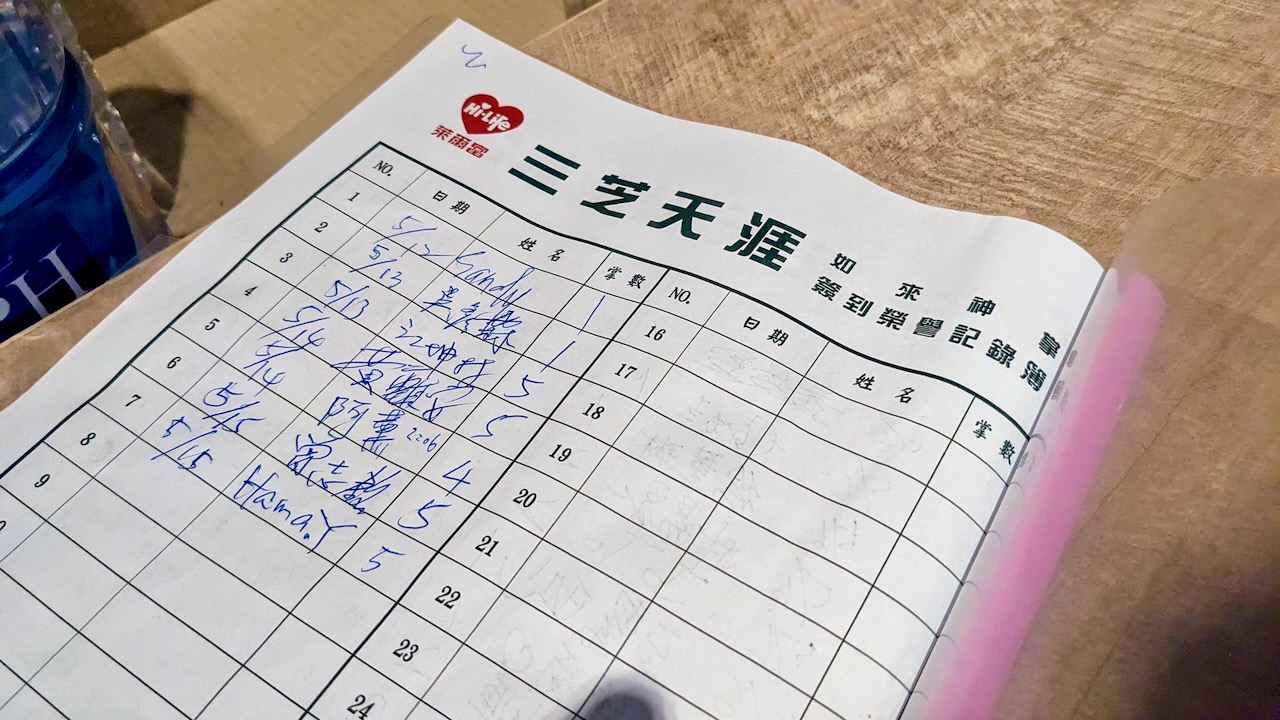 Hi-Life
萊爾富
三芝天涯
如來神掌
簽到榮譽記錄簿
NO. 日期 姓名 掌數
1 5/12 Kandy 1
2 5/13 1
3 5/13 5
4 5/14 5
5 5/14 阿薰 2206 4
6 5/15 5
7 5/15 Hama.Y 5
8
9
NO. 日期 姓名 掌數
16
17
18
19
20
21
22
23
24
H